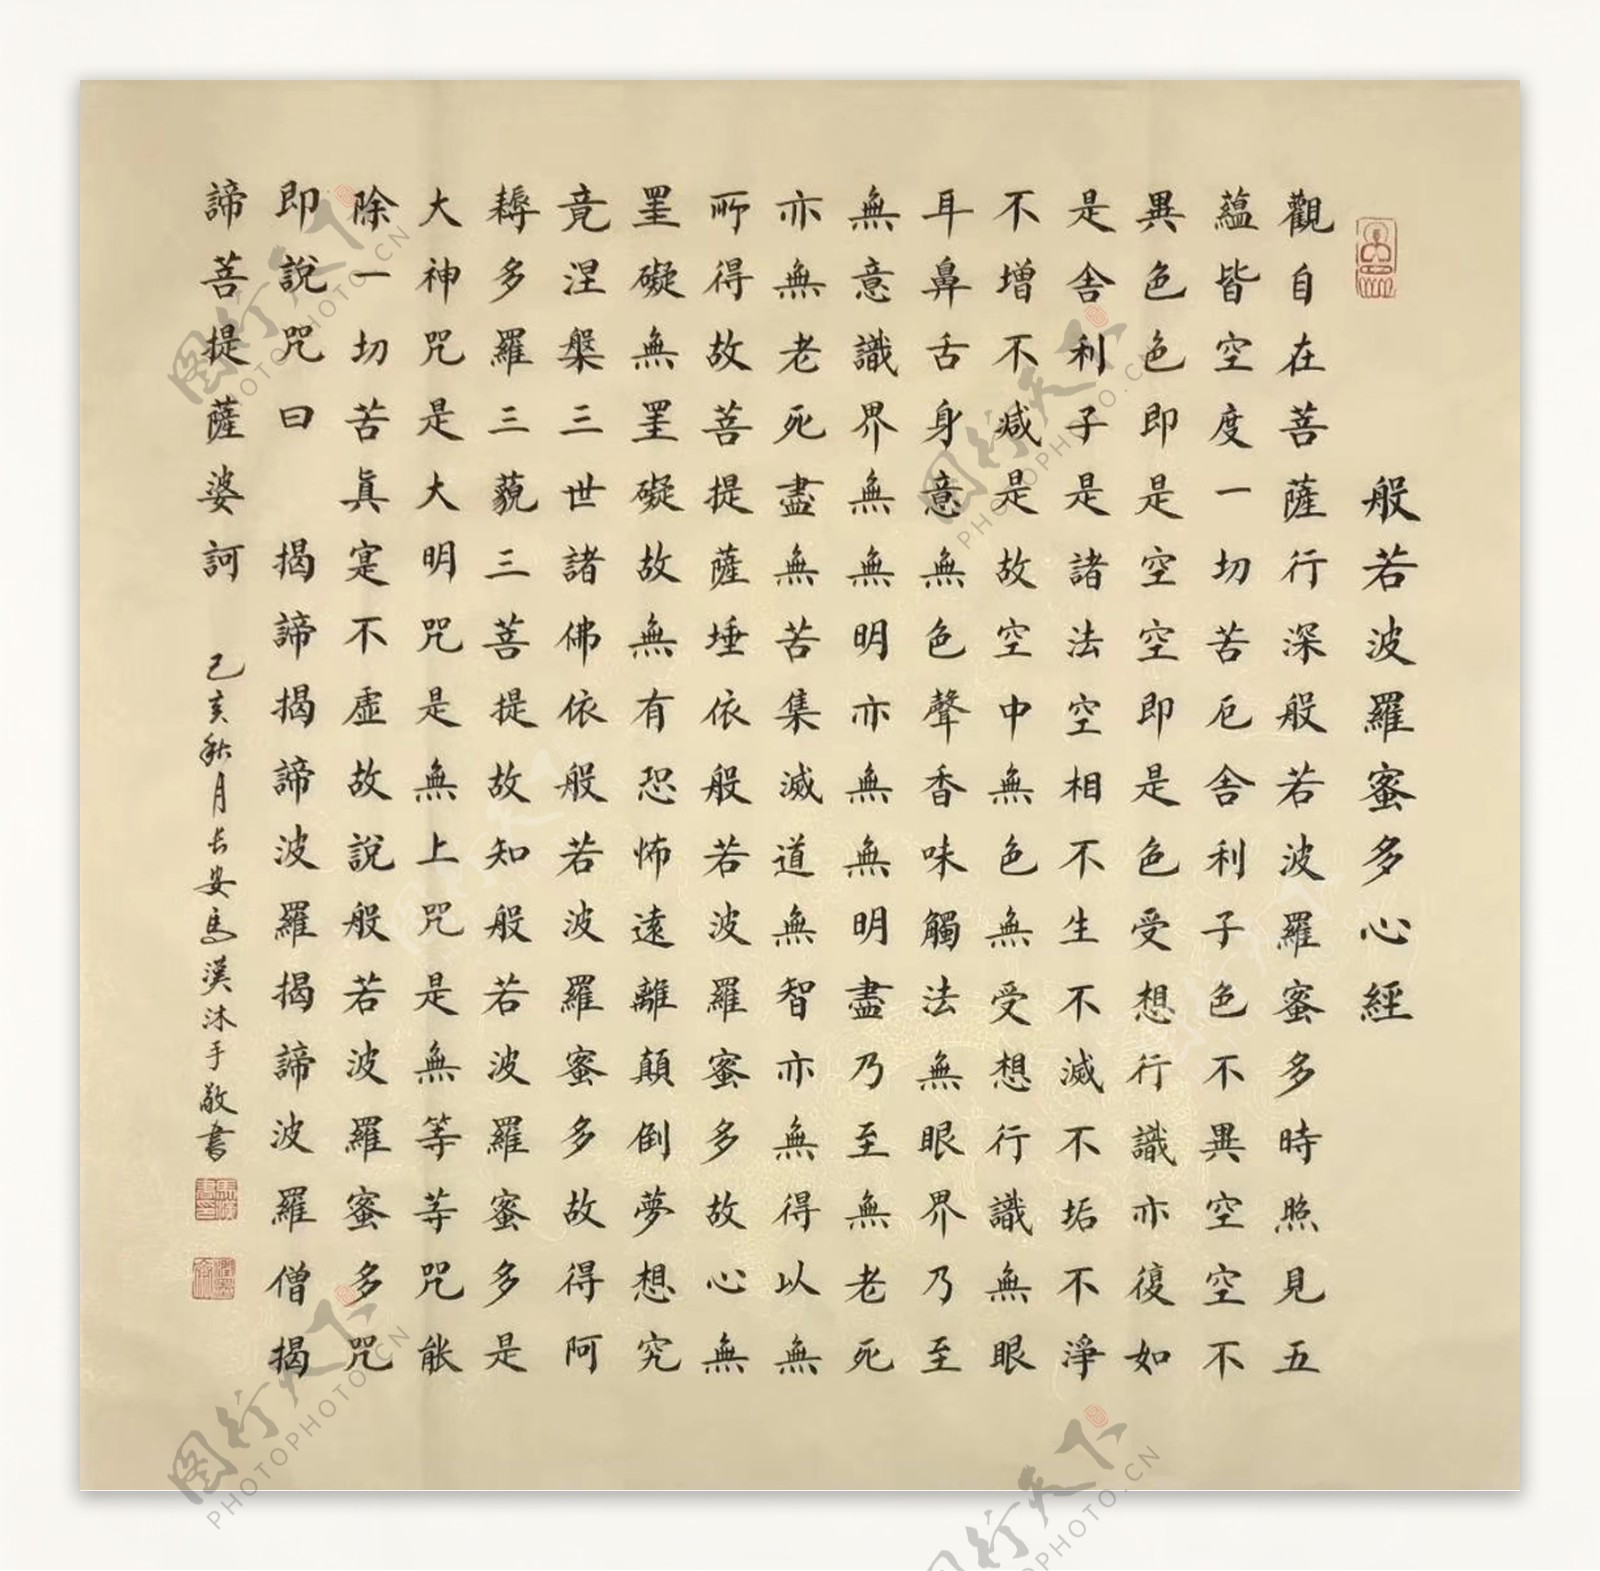 般若波羅蜜多心經
觀自在菩薩行深般若波羅蜜多時照見五
蘊皆空度一切苦厄舍利子色不異空空不
異色色即是空空即是色受想行識亦復如
是舍利子是諸法空相不生不滅不垢不淨
不增不減是故空中無色無受想行識無眼
耳鼻舌身意無色聲香味觸法無眼界乃至
無意識界無無明亦無無明盡乃至無老死
亦無老死盡無苦集滅道無智亦無得以無
所得故菩提薩埵依般若波羅蜜多故心無
罣礙無罣礙故無有恐怖遠離顛倒夢想究
竟涅槃三世諸佛依般若波羅蜜多故得阿
耨多羅三藐三菩提故知般若波羅蜜多是
大神咒是大明咒是無上咒是無等等咒能
除一切苦眞寔不虛故說般若波羅蜜多咒
即說咒曰 揭諦揭諦波羅揭諦波羅僧揭
諦菩提薩婆訶 己亥秋月长安馬漢沐手敬書
图行天下
PHOTOPHOTO.CN
图行天下
PHOTOPHOTO.CN
图行天下
PHOTOPHOTO.CN
图行天下
PHOTOPHOTO.CN